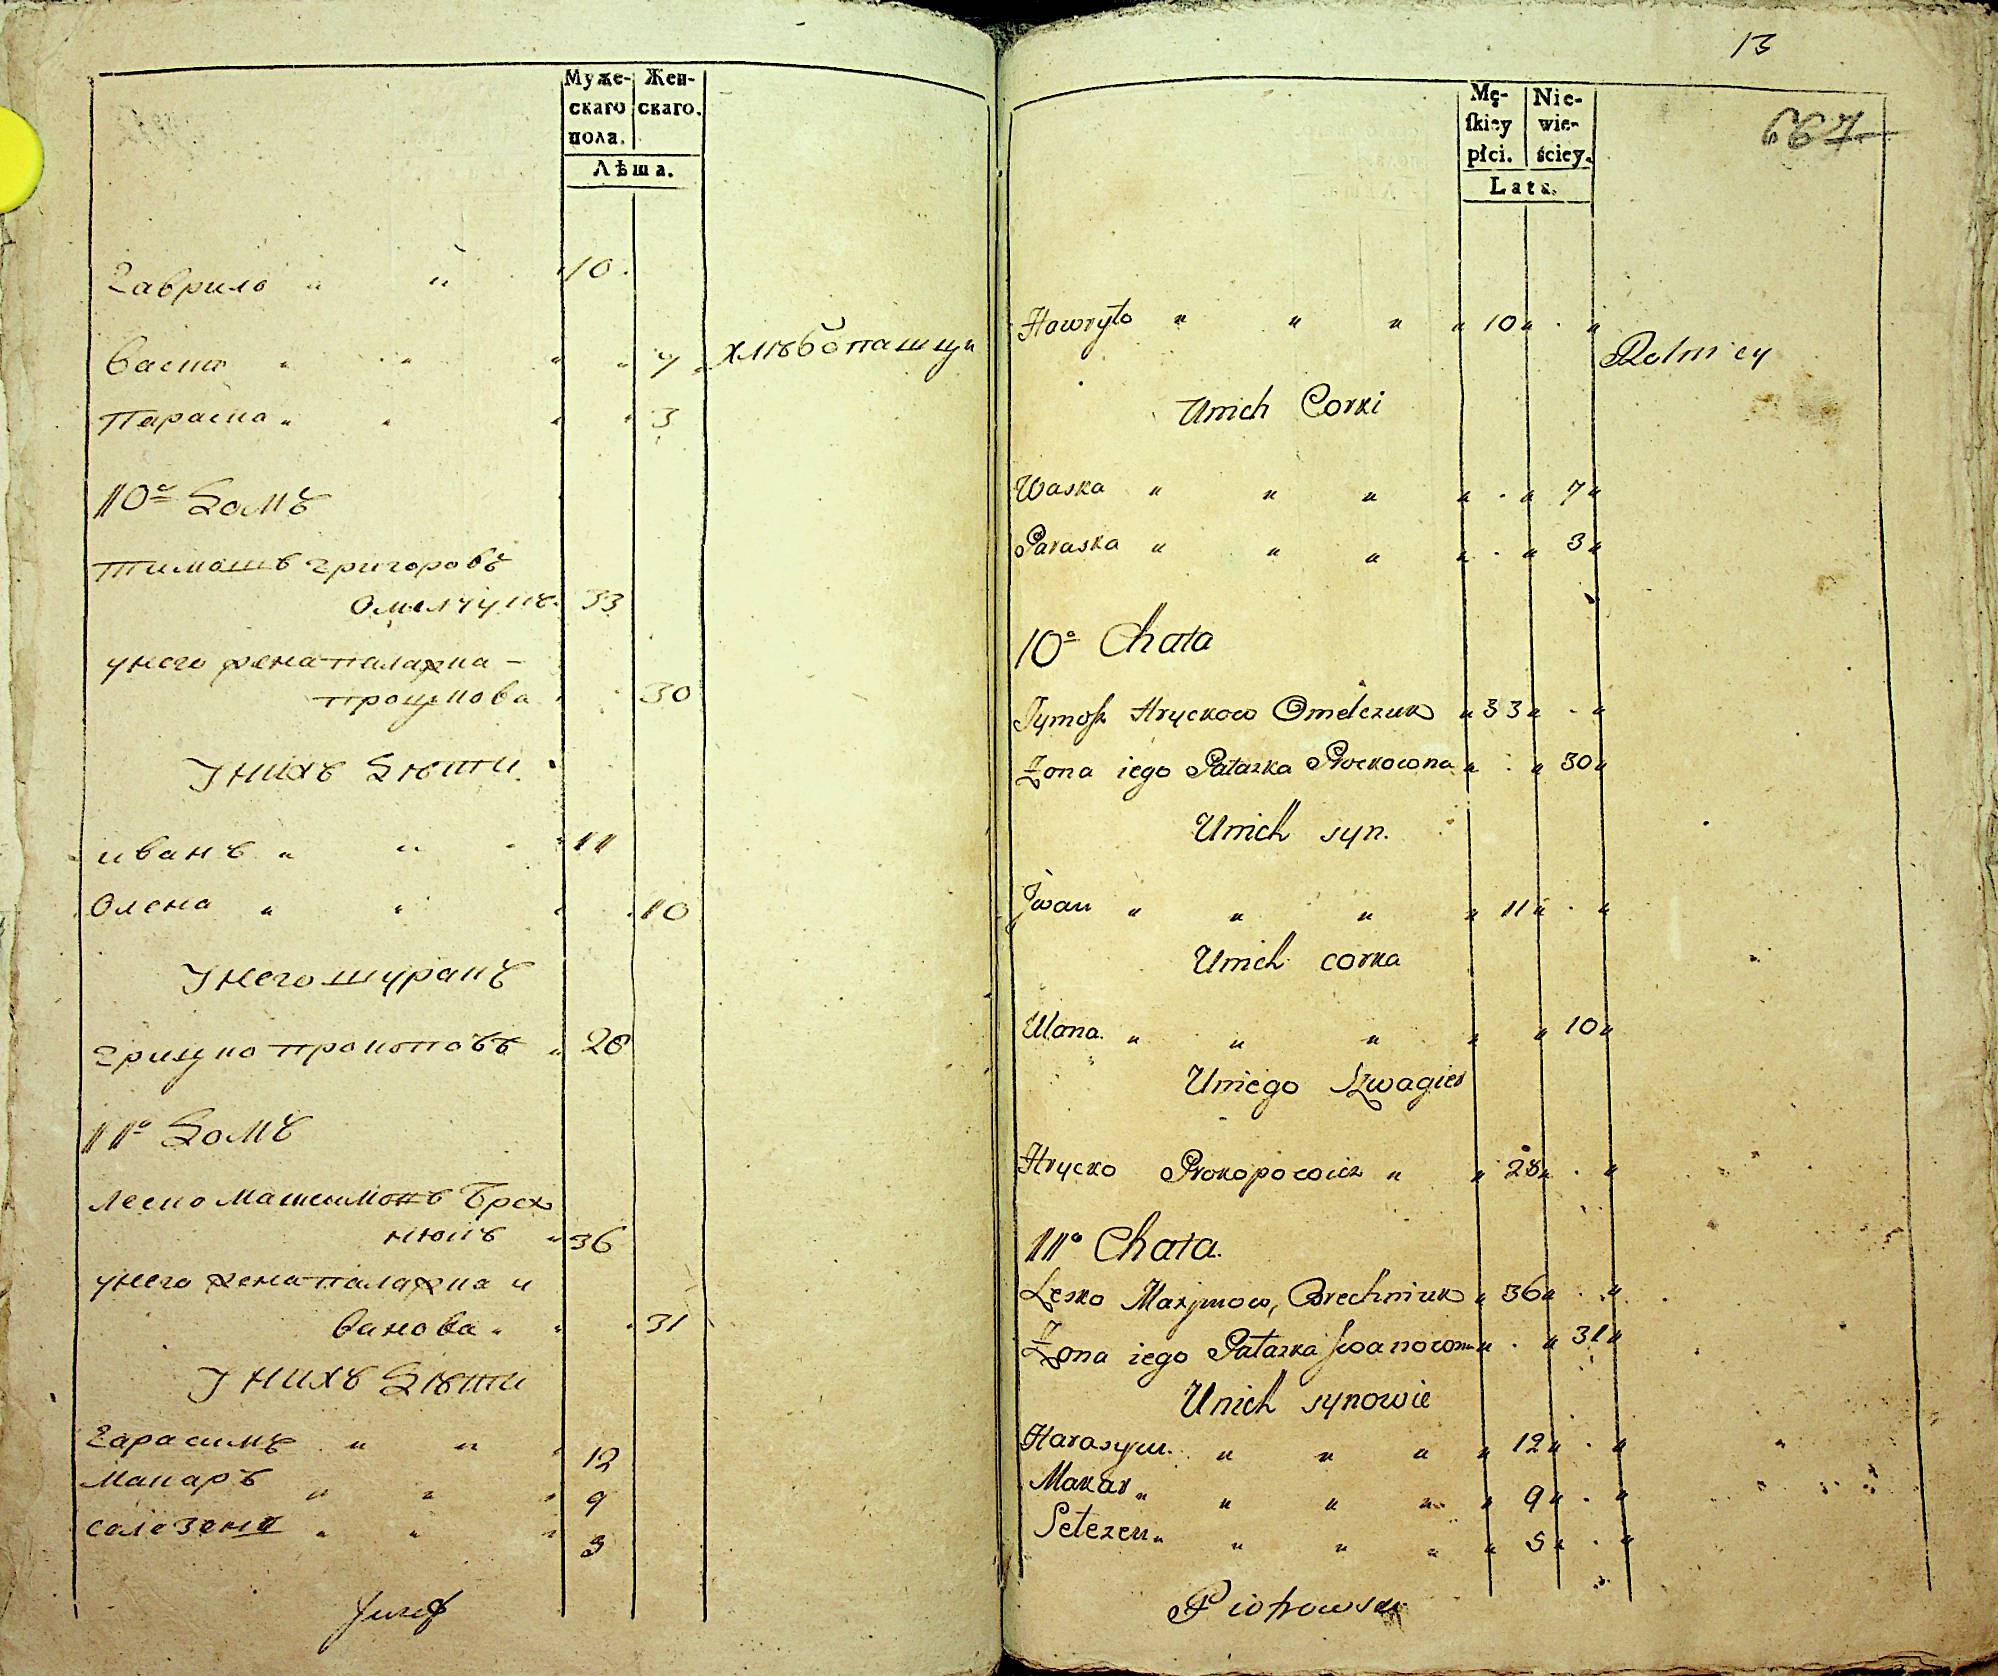 Муже-
скаго
пола.
Жен-
скаго.
Лѣта.
Гаврило " " " 10.
Васка " " " " 7 хлѣбопашци
Параска " " " " 3
10й Домъ
Тимошъ Григоровъ
Омелчукъ 33
у него жена палажка
процкова 30
У нихъ Дѣти
иванъ " " " 11
Олена " " " 10
У него шуракъ
грицко прокоповъ " 28
11й Домъ
леско Максимовъ Брех
нюкъ " 36
у него жена палажка и
ванова " " " 31
У нихъ Дѣти
Гарасимъ " " " 12
Макаръ " " " 9
селезень " " " 5
Jozef
13
667
Mę-
ſkiey
płci.
Nie-
wie-
ściey.
Lata.
Hawryło " " " " 10 " . "
Rolnicy
Unich Corki
Waska " " " " . " 7 "
Paraska " " " " . " 3 "
10a Chata
Tymosz Hryckow Omelczuk " 33 " . "
Zona iego Pałazka Prockowna " . " 30 "
Unich syn.
Jwan " " " " 11 " . "
Unich corka
Ulona " " " " " 10 "
Uniego Szwagier
Hrycko Prokopowicz " " 28 " . "
11a Chata.
Lesko Maxymow, Brechniuk " 36 " . "
Zona iego Pałazka Jwanowna " . " 31 "
Unich synowie
Harasym " " " " 12 " . "
Makar " " " " " 9 " . "
Selezen " " " " " 5 " . "
Piotrowski